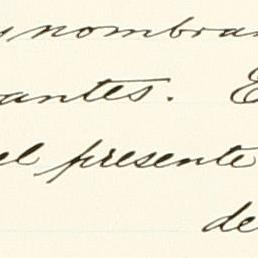 y nombra
antes. E
el presente
de